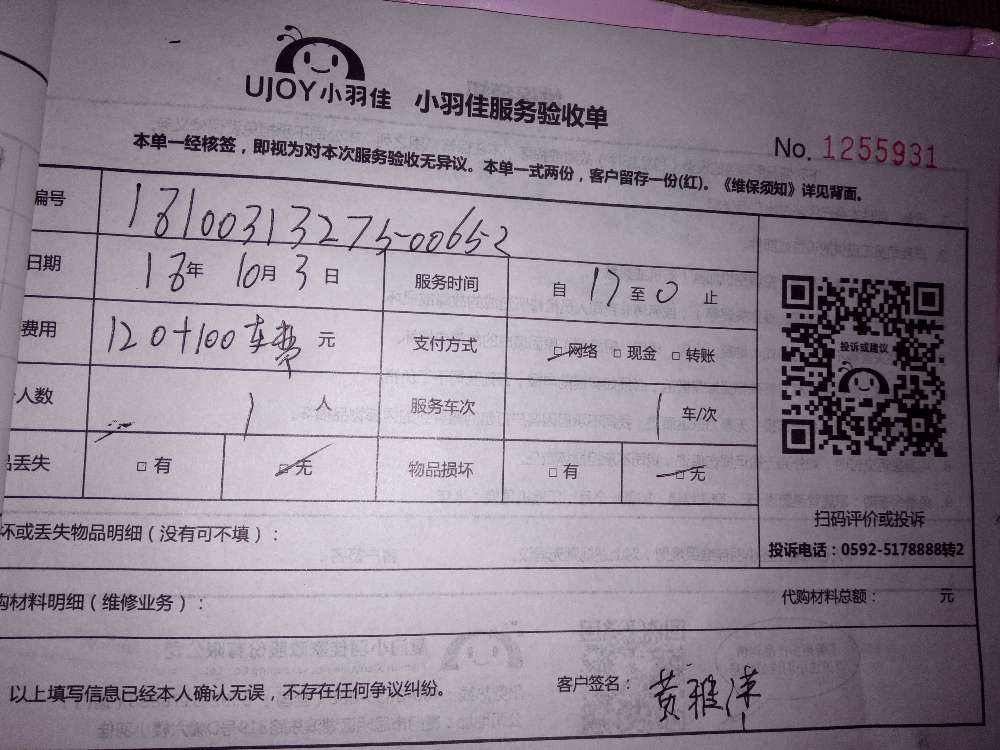 UJOY小羽佳 小羽佳服务验收单
No. 1255931
本单一经核签，即视为对本次服务验收无异议。本单一式两份，客户留存一份(红)。《维保须知》详见背面。
编号 18100313275-00652
日期 18年 10月 3 日 服务时间 自 17 至 0 止
费用 120+100车费 元 支付方式 □网络 □现金 □转账
人数 1 人 服务车次 1 车/次
丢失 □有 □无 物品损坏 □有 □无
投诉或建议
扫码评价或投诉
投诉电话：0592-5178888转2
坏或丢失物品明细（没有可不填）：
购材料明细（维修业务）： 代购材料总额： 元
以上填写信息已经本人确认无误，不存在任何争议纠纷。 客户签名：黄雅萍